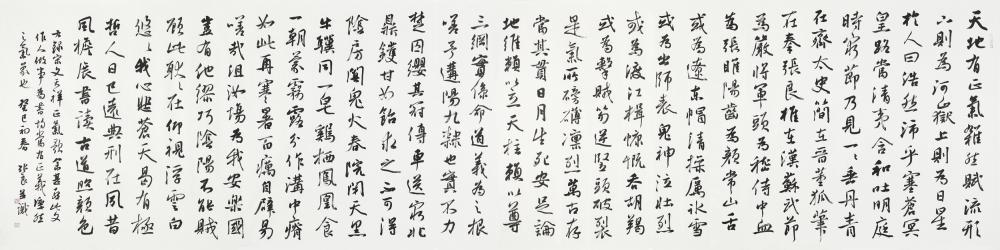 天地有正氣雜然賦流形
下則為河嶽上則為日星
於人曰浩然沛乎塞蒼冥
皇路當清夷含和吐明庭
時窮節乃見一一垂丹青
在齊太史簡在晉董狐筆
在秦張良椎在漢蘇武節
為嚴將軍頭為嵇侍中血
為張睢陽齒為顏常山舌
或為遼東帽清操厲冰雪
或為出師表鬼神泣壯烈
或為渡江楫慷慨吞胡羯
或為擊賊笏逆豎頭破裂
是氣所磅礴凜烈萬古存
當其貫日月生死安足論
地維賴以立天柱賴以尊
三綱實係命道義為之根
嗟予遘陽九隸也實不力
楚囚纓其冠傳車送窮北
鼎鑊甘如飴求之不可得
陰房闃鬼火春院閟天黑
牛驥同一皂雞栖鳳凰食
一朝蒙霧露分作溝中瘠
如此再寒暑百癘自辟易
嗟哉沮洳場為我安樂國
豈有他繆巧陰陽不能賊
顧此耿耿在仰視浮雲白
悠悠我心悲蒼天曷有極
哲人日已遠典刑在夙昔
風檐展書讀古道照顏色
宋文天祥正氣歌余喜好此文
作人做事為書皆當有正義凜然
之氣象也 癸巳初春